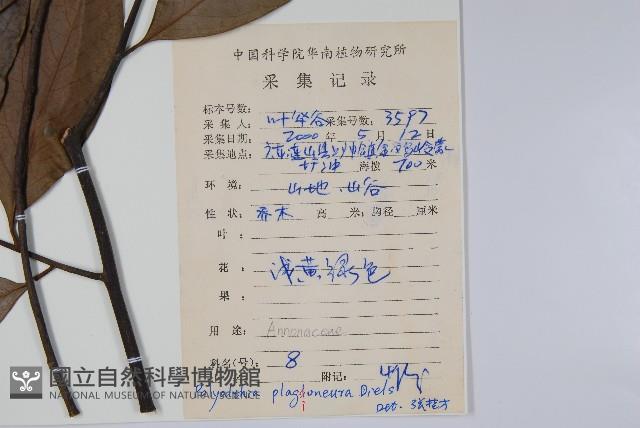 中国科学院华南植物研究所
采集记录
标本号数:
采集人: 叶华谷 采集号数: 3597
采集日期: 2000 年 5 月 12 日
采集地点: 广东连山县
海拔 700 米
环 境: 山地、山谷
性 状: 乔木 高 米; 胸径 厘米
叶:
花: 浅黄绿色
果:
用 途: Annonaceae
科名(号): 8 附记:
國立自然科學博物館
NATIONAL MUSEUM OF NATURAL SCIENCE
plagioneura Diels
Det. 张桂才